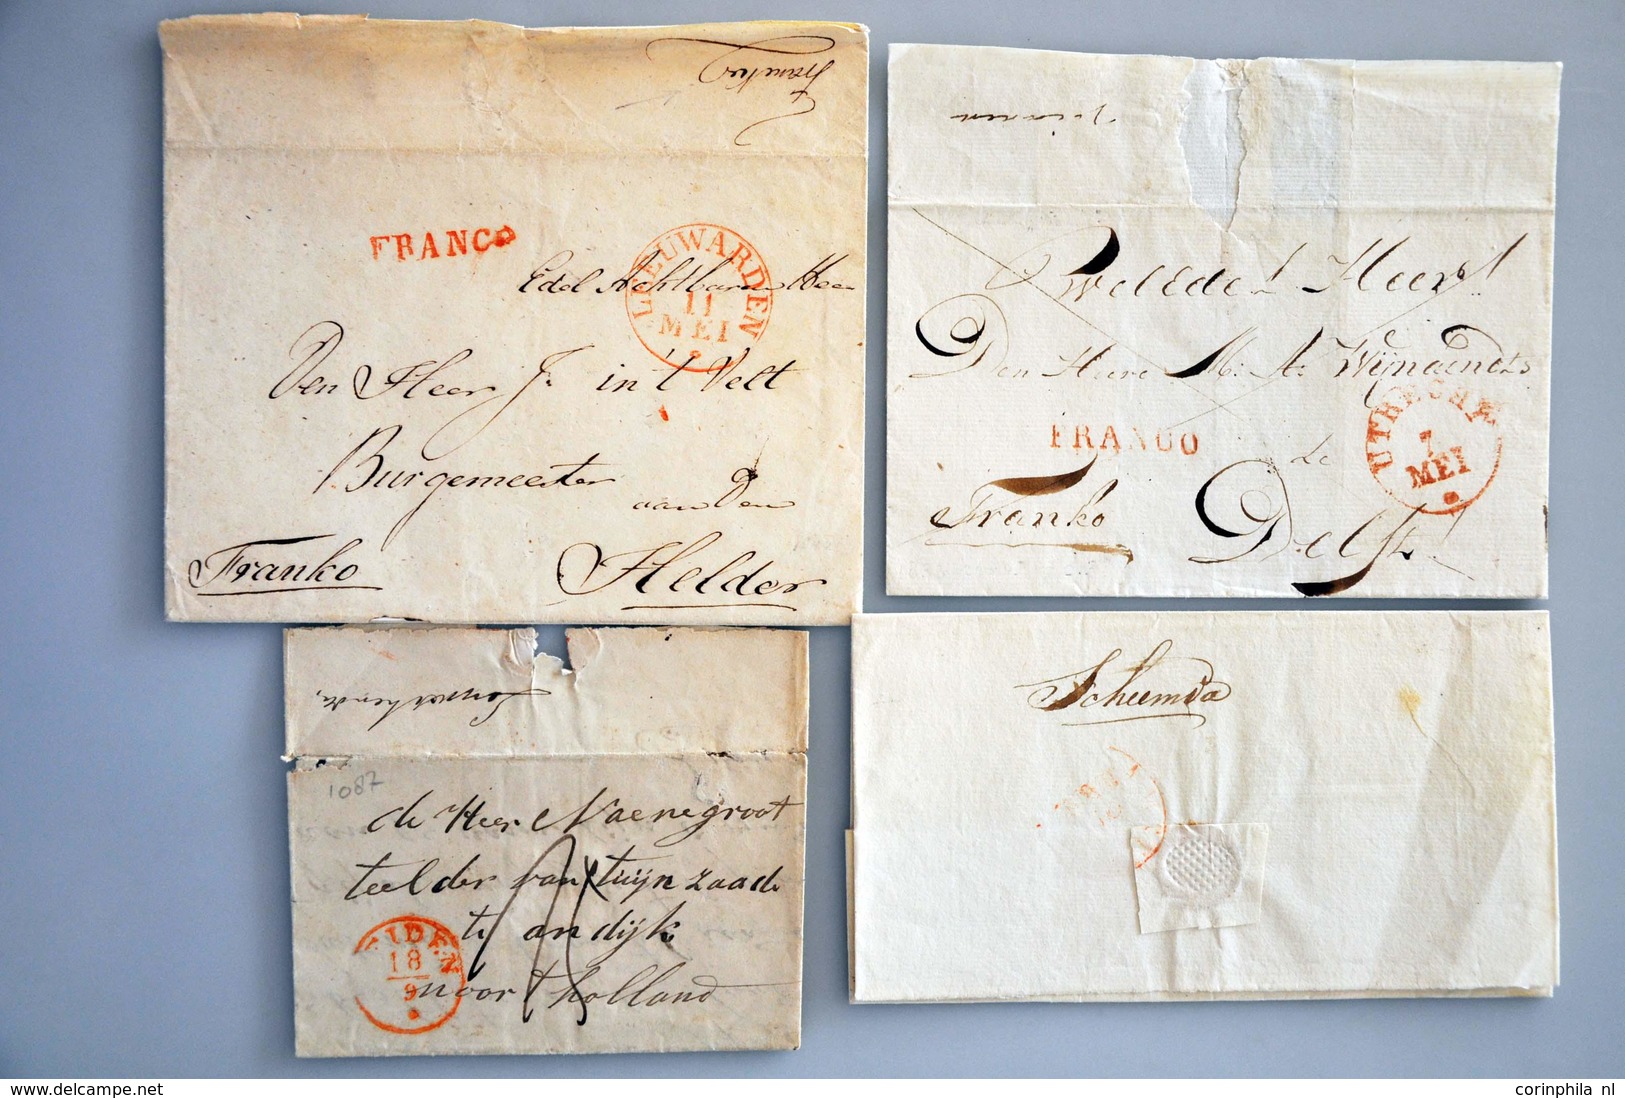 Franeker
FRANCO
LEEUWARDEN
11
MEI
Edel Achtbaren Heer
Den Heer J. in 't Velt
Burgemeester
aan Den
Franko
Helder
Vianen
WelEdel Heer!
Den Heere M: A: Wijnaendts
UTRECHT
7
MEI
FRANCO
te
Franko
Delft!
1087
de Heer Naenegroot
teelder van tuijn zaade
te an dijk
noort holland
LEIDEN
18
9
Scheemda
corinphila nl